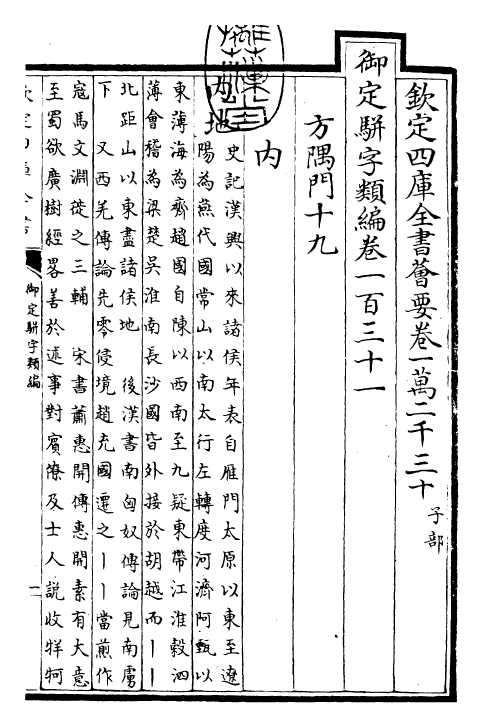 欽定四庫全書薈要卷一萬二千三十 子部
御定駢字類編卷一百三十一
方隅門十九
内
内地 史記漢興以來諸侯年表自雁門太原以東至遼
陽為燕代國常山以南太行左轉度河濟阿甄以
東薄海為齊趙國自陳以西南至九疑東帶江淮穀泗
薄會稽為梁楚吳淮南長沙國皆外接於胡越而丨丨
北距山以東盡諸侯地 後漢書南匈奴傳論見南虜
下 又西羌傳論先零侵境趙充國遷之丨丨當煎作
寇馬文淵徙之三輔 宋書蕭惠開傳惠開素有大意
至蜀欲廣樹經畧善於述事對賓僚及士人説收牂牁
欽定四庫全書
御定駢字類編
一